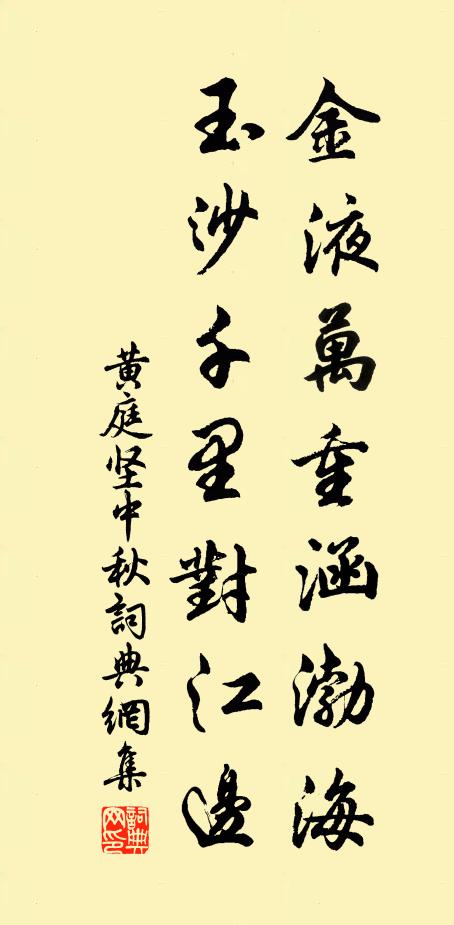 金液萬重涵渤海
玉沙千里對江邊
黄庭坚中秋詞典網集
詞典網印